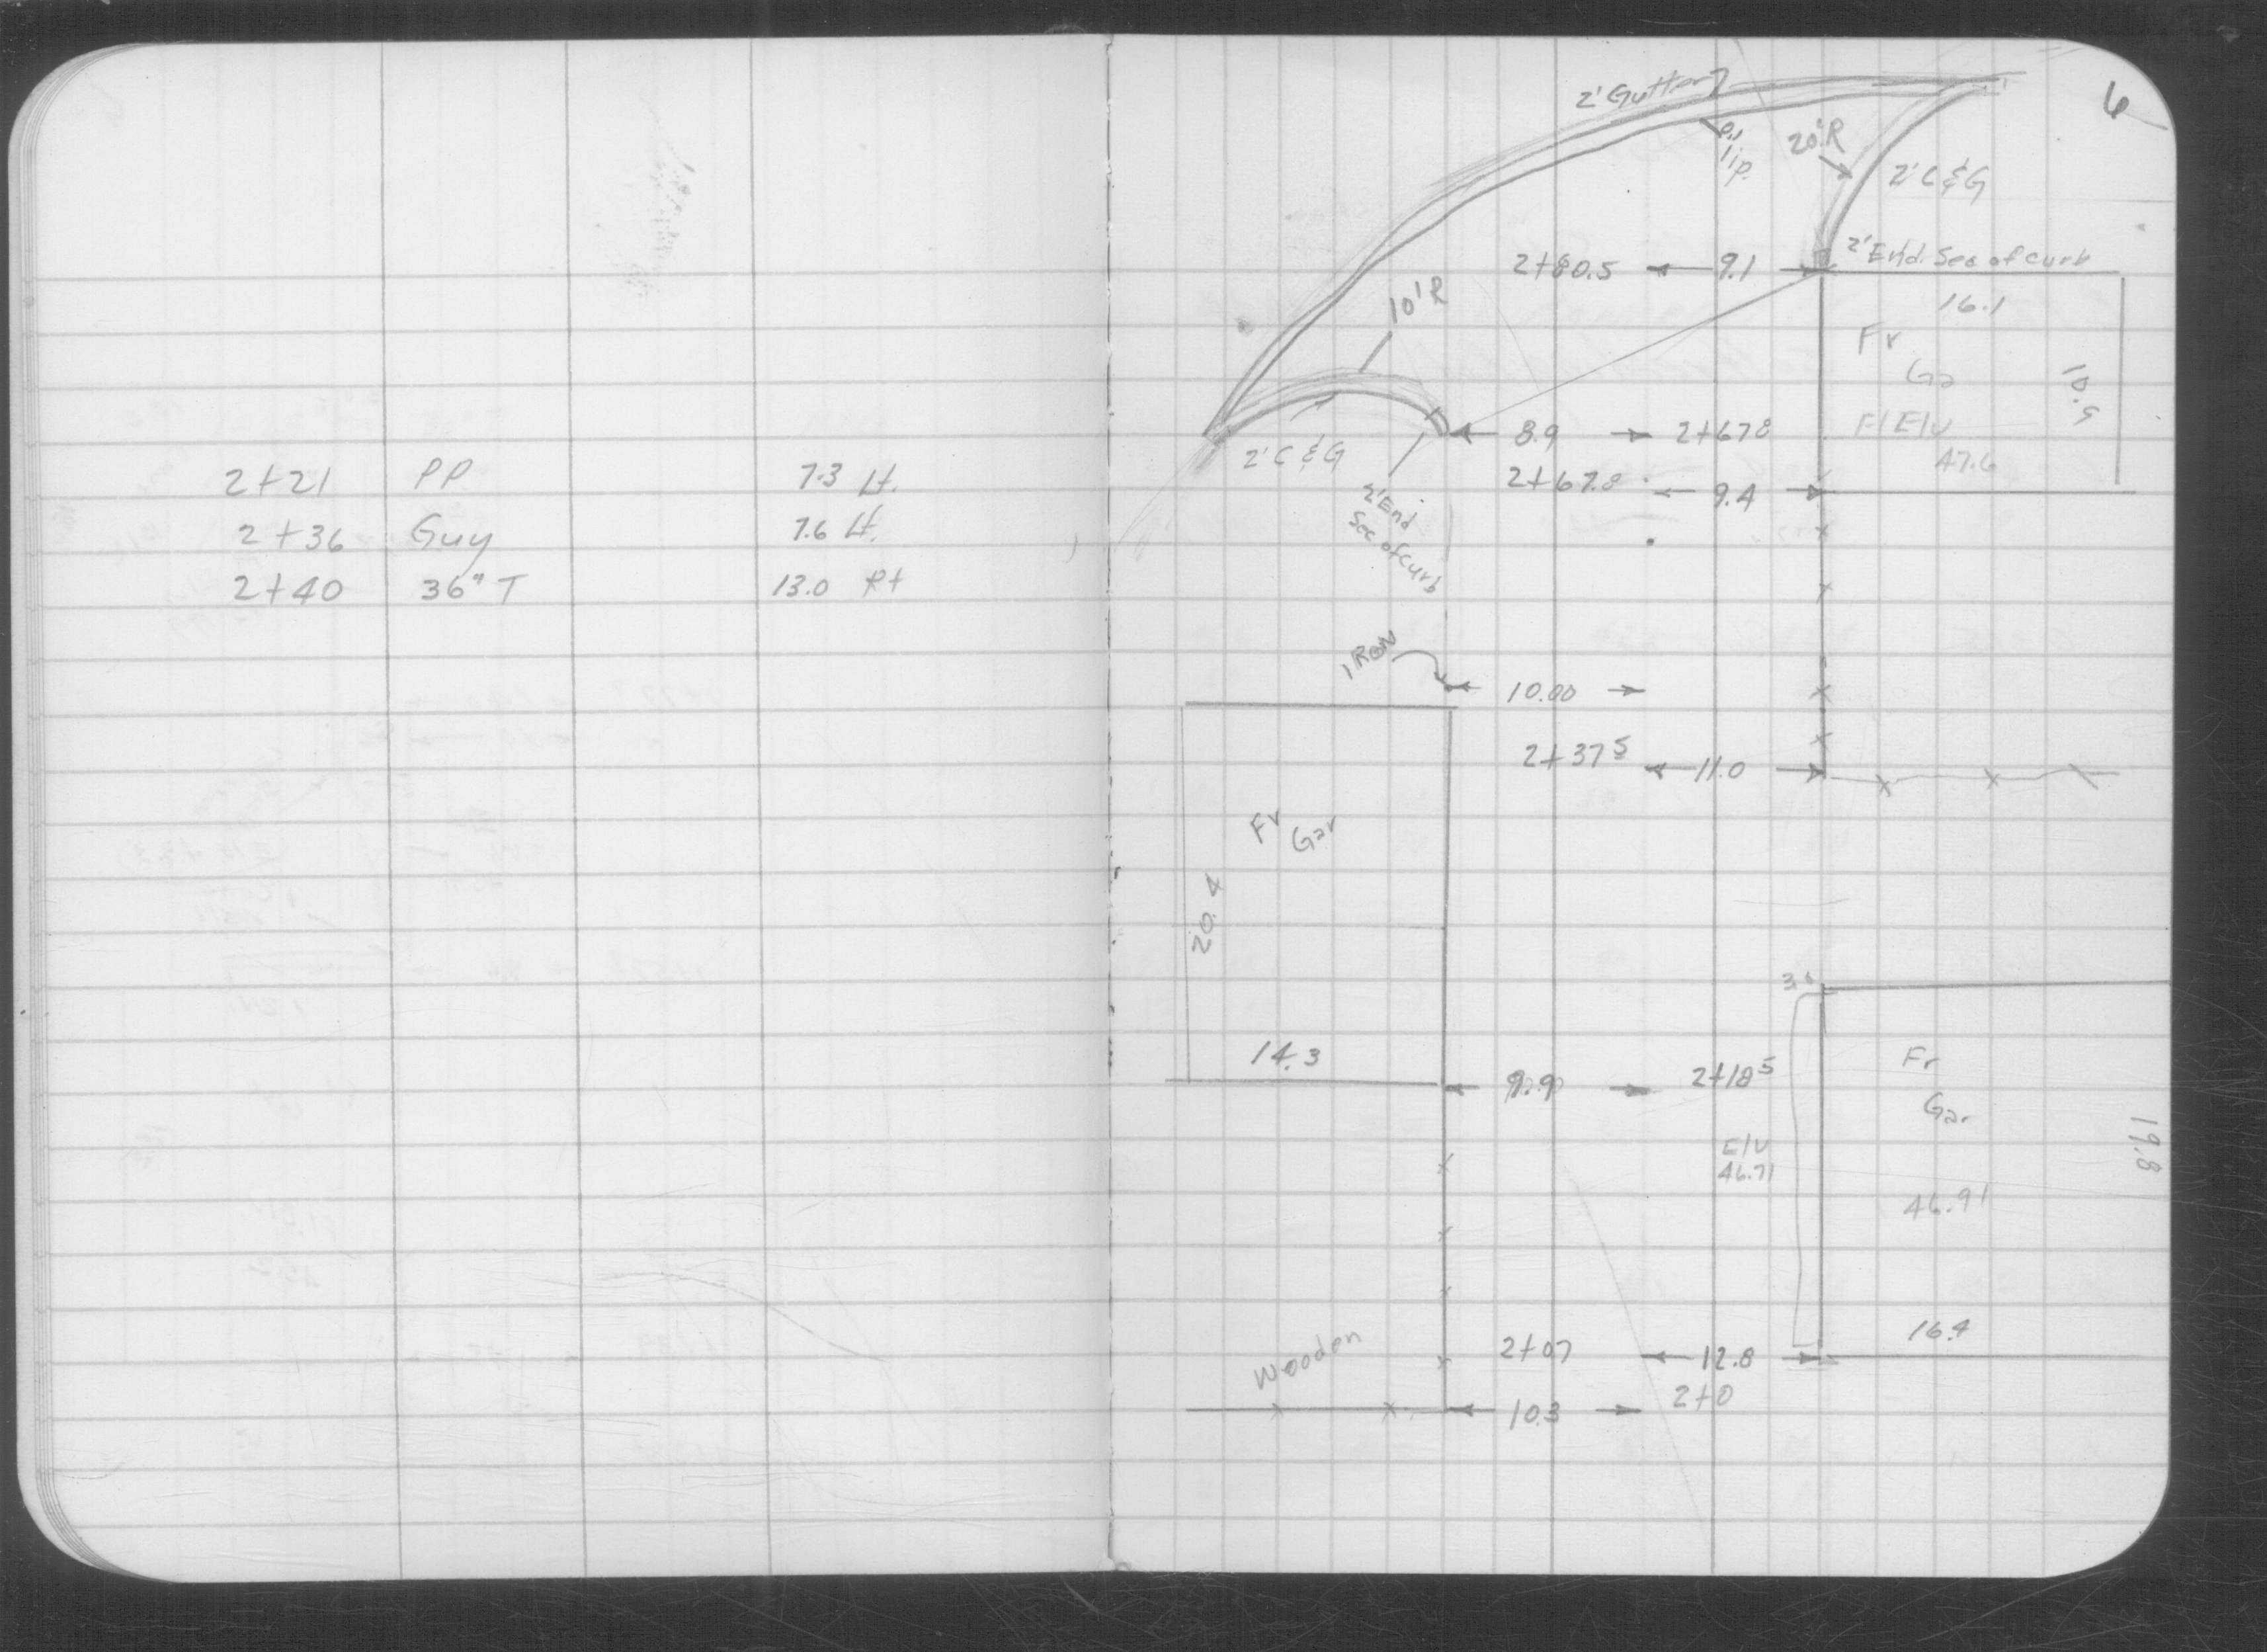 2+21 PP 7.3 Lt.
2+36 Guy 7.6 Lt.
2+40 36" T 13.0 Rt
6
2' Gutter
lip
20'R
2' C&G
2' End Sec of curb
2+80.5 9.1
16.1
10'R
Fr
Ga
10.9
Fl Elv
47.6
8.9 2+678
2' C&G
2+67.8 9.4
2' End
Sec of curb
IRON
10.00
2+37⁵ 11.0
Fr
Gar
20.4
14.3
9.9 2+18⁵
Fr
Gar
Elv
46.71
19.8
46.91
16.4
Wooden
2+07 12.8
2+0
10.3